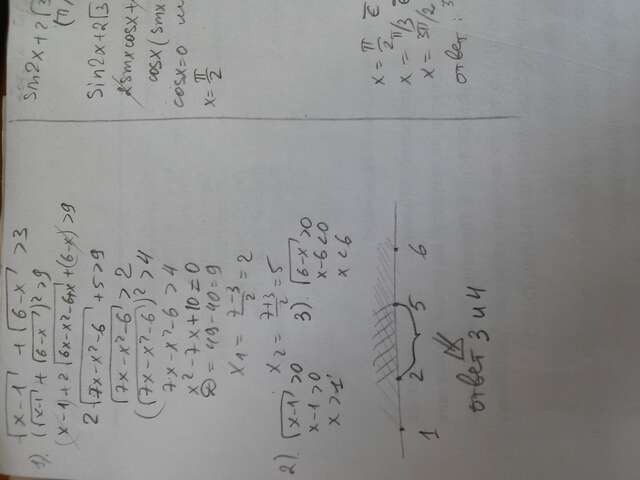 √x-1 + √6-x > 3
1). (√x-1 + √6-x)² > 9
(x-1)+2√6x-x²-6+x+(6-x)>9
2√7x-x²-6 +5>9
√7x-x²-6 > 2
(√7x-x²-6)² > 4
7x-x²-6 > 4
x²-7x+10=0
D = 49-40=9
x1 = 7-3/2 = 2
x2 = 7+3/2 = 5
2). √x-1 > 0
x-1 > 0
x > 1
3). √6-x > 0
x-6 < 0
x < 6
1 2 5 6
ответ 3 и 4
sin2x+2√3
(π/
Sin2x+2√3
2sinxcosx+
cosx(sinx
cosx=0 или
x = π/2
x = π/2 ∈
x = π/3 ∈
x = 3π/2
ответ: 3